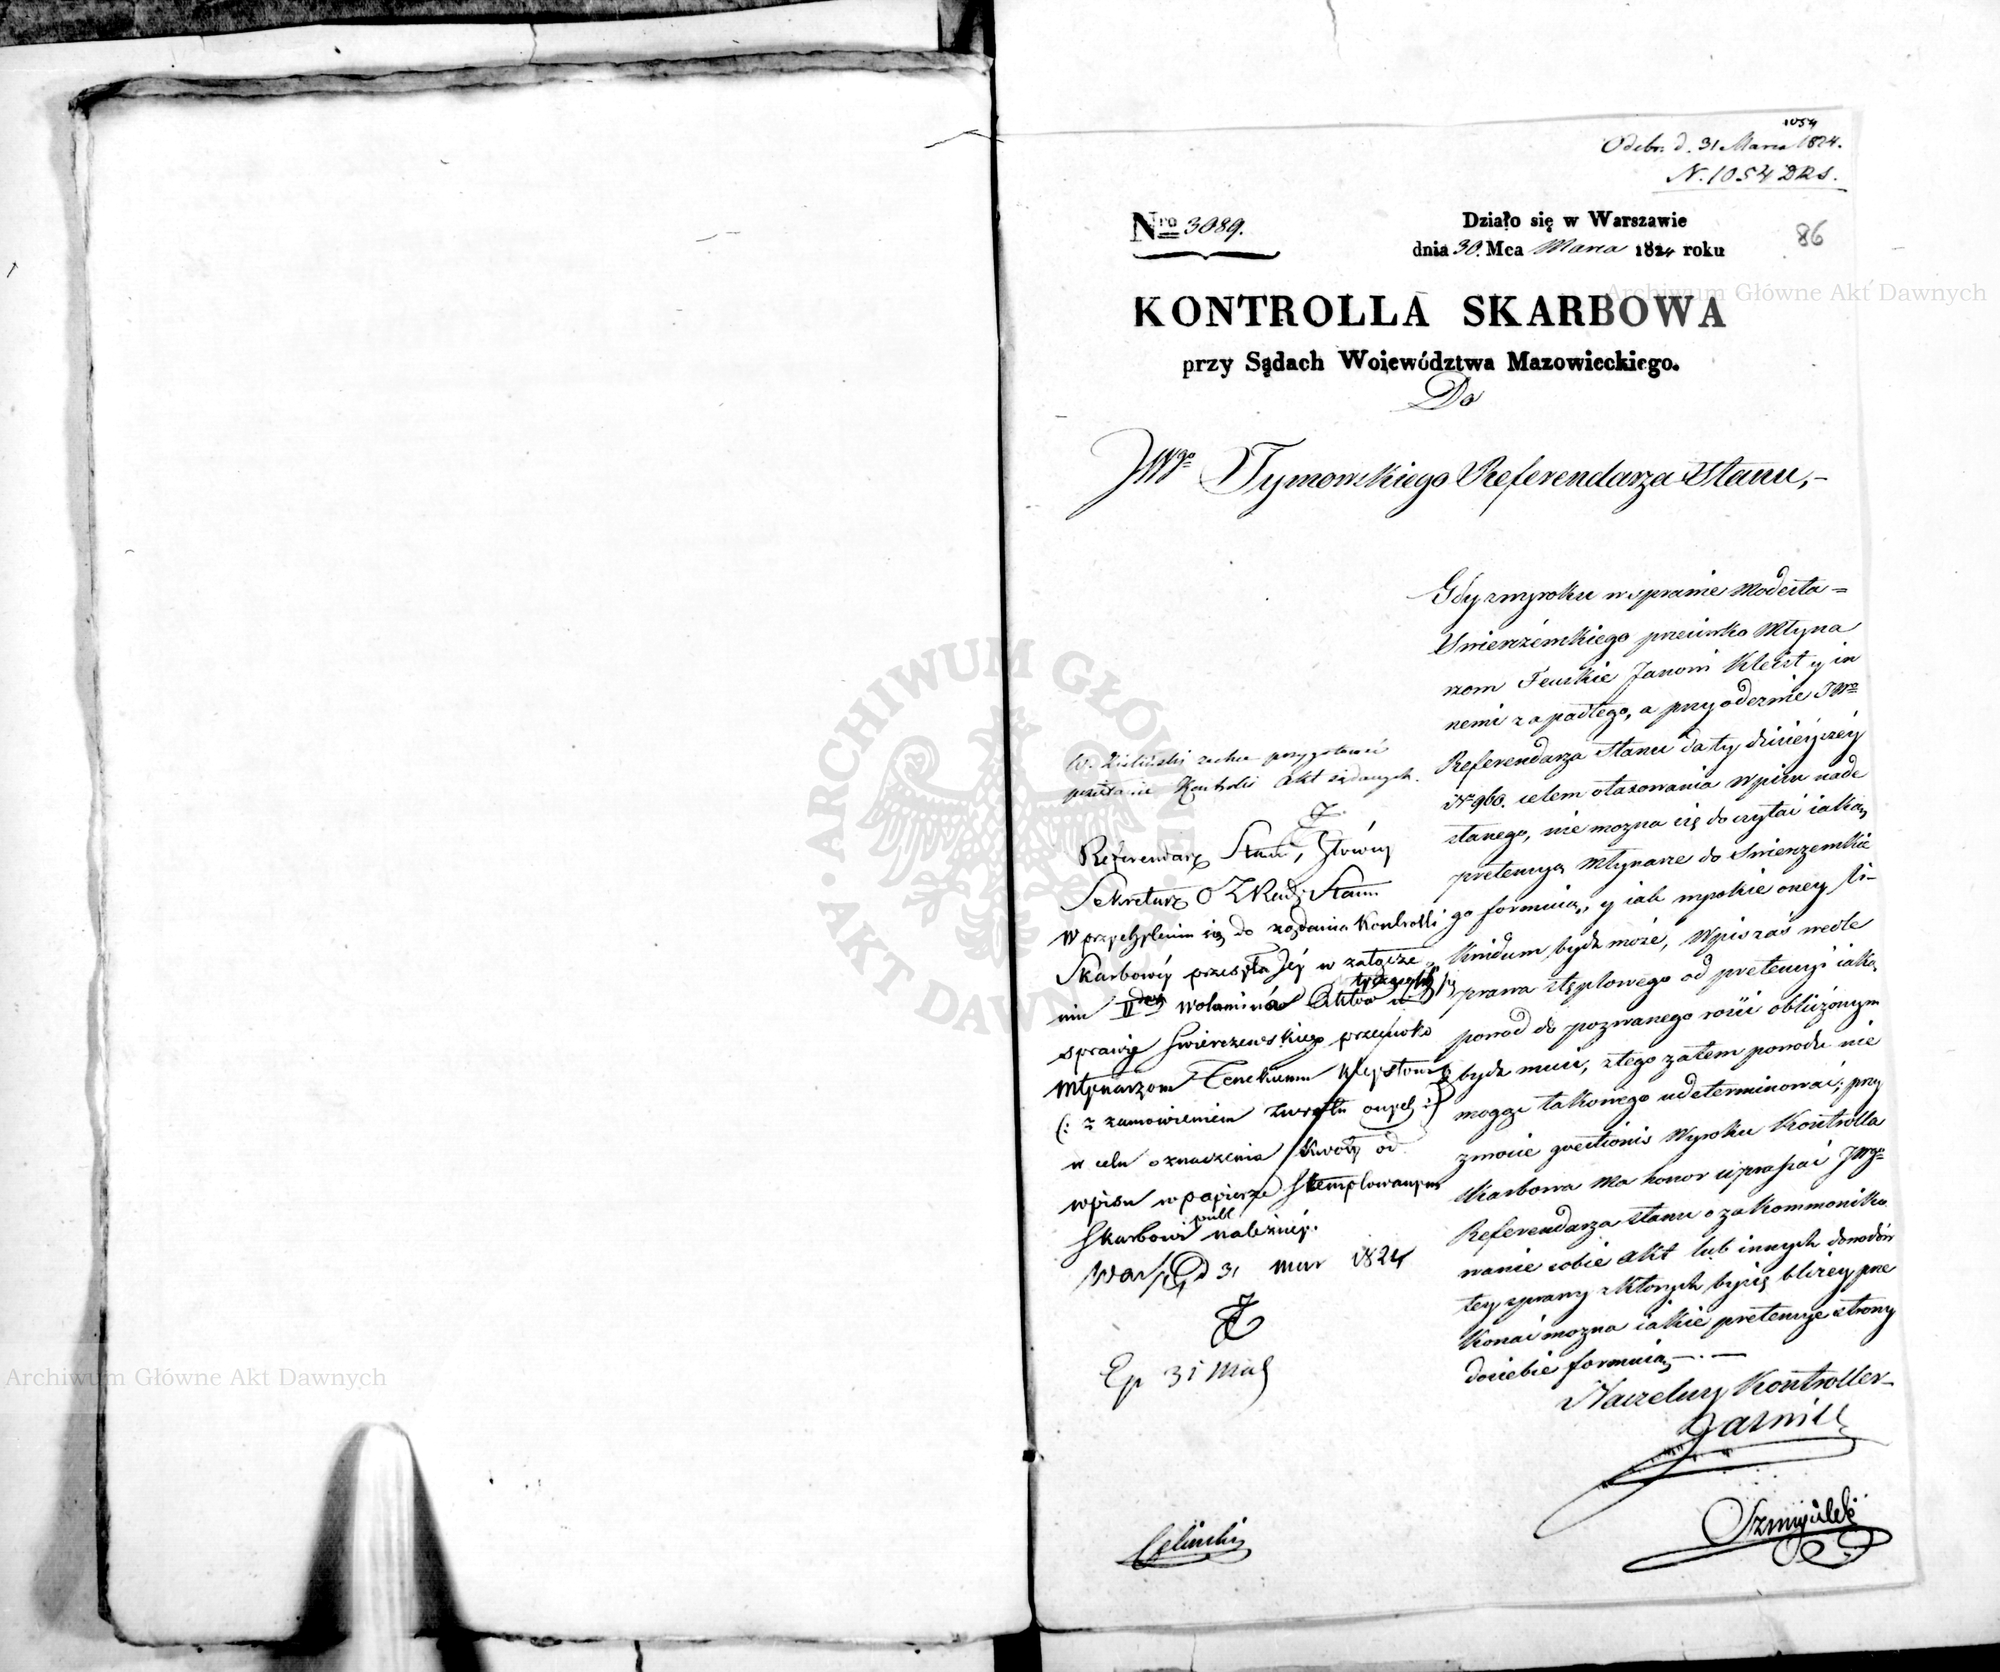 1054
Odebr. d. 31 Marca 1824.
N. 1054 DRS.
Nro 3089.
Działo się w Warszawie
dnia 30. Mca Marca 1824 roku
86
KONTROLLA SKARBOWA
przy Sądach Woiewództwa Mazowieckiego.
Do
JWgo Tymowskiego Referendarza Stanu,-
Gdy z wyroku w sprawie Modesta=
Swierzewskiego przeciwko Młyna
rzom Janowi Kleist y in
nemi zapadłego, a przy odezwie JWo
Referendarza Stanu daty dzisieyszey
Nr 960. celem otaxowania Wpisu nade
słanego, nie mozna się doczytać iaką
pretensyą Młynarze do Swierzewskie
go formuią, y iak wysokie oney li-
kwidum bydz może, Wpis zaś wedle
prawa stęplowego od pretensyi iaką
powod do pozwanego rości obliczonym
bydz musi, z tego zatem powodu nie
mogąc takowego udeterminować, przy
zwrocie questionis Wyroku Kontrolla
Skarbowa ma honor upraszać JWgo
Referendarza stanu o zakommuniko
wanie sobie Akt lub innych dowodów
tey sprawy z których byśię bliżey prze
konać mozna iakie pretensye strony
do siebie formuią —.—
Naczelny Kontroller-
Szmigulski
W. Zieliński zechce przygotować
przesłanie Kontroli Akt żądanych.
Referendarz Stanu, Główny
Sekretarz O Z Rady Stanu
W przychyleniu się do żądania Kontrolli
Skarbowey przesyła Jey w załącze
niu II Wolumina Aktów
sprawie Swierczewskiego przeciwko
Młynarzom Kleystowi
(: z zamowieniem zwrotu onych :)
w celu oznaczenia kwoty od
wpisu w papierze Stemplowanym
Skarbowi publ należney.
Warsz d 31 Mar 1824
Ep 31 Mar
Zieliński
Archiwum Główne Akt Dawnych
Archiwum Główne Akt Dawnych
ARCHIWUM GŁÓWNE
AKT DAWNYCH